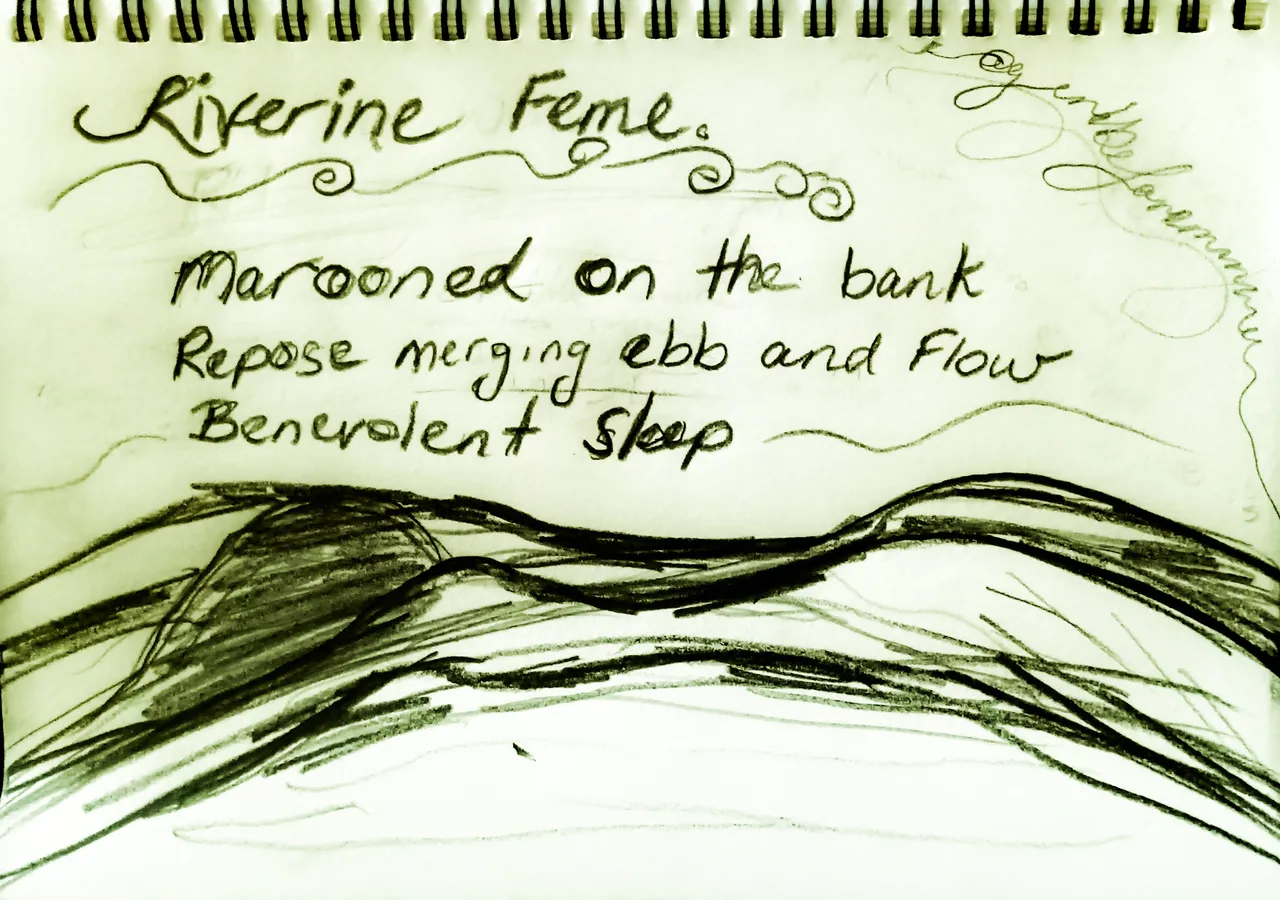 Riverine Feme.
Marooned on the bank
Repose merging ebb and Flow
Benevolent Sleep